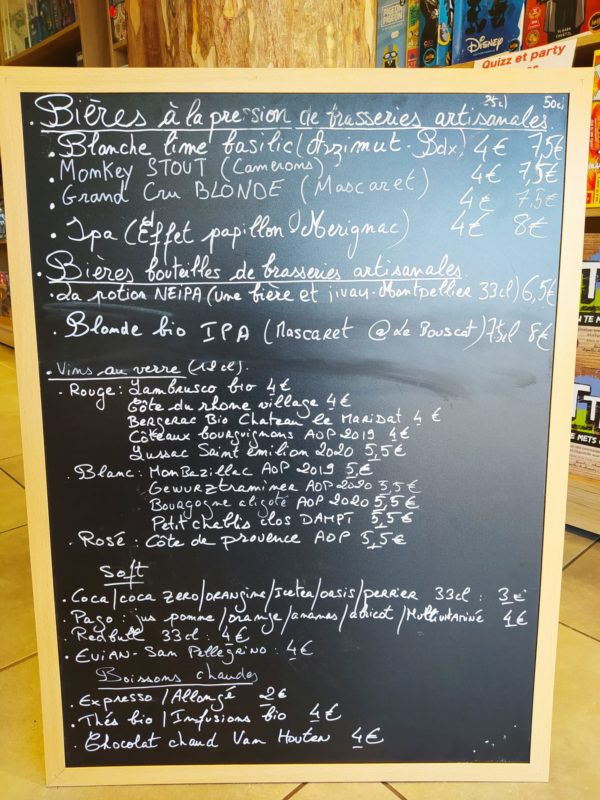 DISNEY
Quizz et party
25cl 50cl
. Bières à la pression de brasseries artisanales
. Blanche lime basilic (Azzimut - Bdx) 4€ 7,5€
. Monkey STOUT (Camerons) 4€ 7,5€
. Grand Cru BLONDE (Mascaret) 4€ 7.5€
. Ipa (Effet papillon Merignac) 4€ 8€
. Bières bouteilles de brasseries artisanales
. La potion NEIPA (une bière et jivay - Montpellier 33cl) 6,5€
. Blonde bio IPA (Mascaret @ Le Bouscat) 75cl 8€
. Vins au verre (12cl).
. Rouge : Lambrusco bio 4€
Côte du rhone village 4€
Bergerac Bio Chateau le MARIDAT 4€
Côteaux bourguignons AOP 2019 4€
Lussac Saint émilion 2020 5,5€
. Blanc : MonBazillac AOP 2019 5€
Gewurztraminer AOP 2020 5,5€
Bourgogne aligoté AOP 2020 5,5€
Petit chablis clos DAMPT 5,5€
. Rosé : Côte de provence AOP 5,5€
Soft
. Coca/coca zero/orangina/Icetea/oasis/perrier 33cl : 3€
. Pago : jus pomme/orange/ananas/abricot/Multivitaminé 4€
. Redbull 33cl : 4€
. Evian - San Pellegrino : 4€
Boissons chaudes
. Expresso / Allongé 2€
. Thés bio / Infusions bio 4€
. Chocolat chaud Van Houten 4€